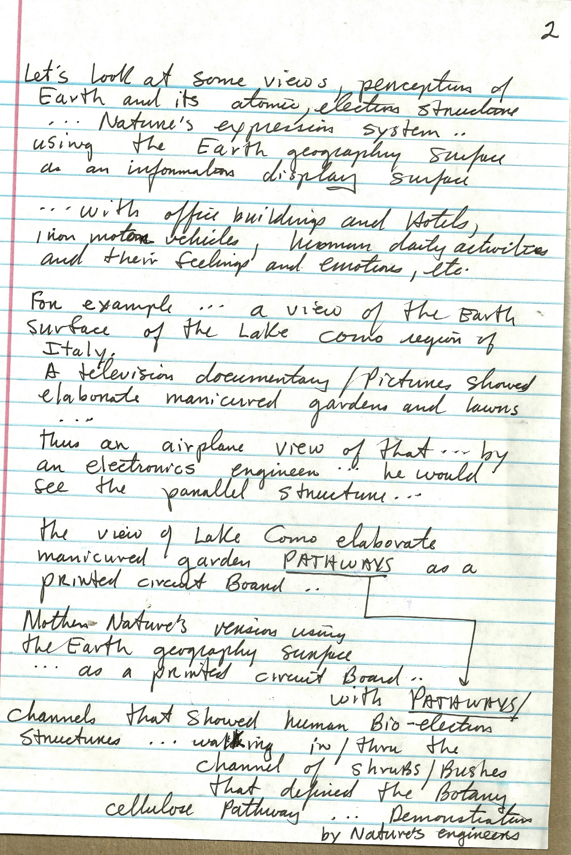 2
Let's look at some views, perception of
Earth and its atomic, electron structure
... Nature's expression system ..
using the Earth geography surface
as an information display surface
... with office buildings and Hotels,
iron motor vehicles, human daily activities
and their feelings and emotions, etc.
For example ... a view of the Earth
surface of the Lake Como region of
Italy.
A television documentary / Pictures showed
elaborate manicured gardens and lawns
....
thus an airplane view of that ... by
an electronics engineer ... he would
see the parallel structure...
the view of Lake Como elaborate
manicured garden PATHWAYS as a
printed circuit Board ..
Mother Nature's version using
the Earth geography surface
... as a printed circuit Board ..
with PATHWAYS/
channels that showed human Bio-electron
structures ... walking in/thru the
channel of shrubs/Bushes
that defined the Botany
cellulose Pathway ... Demonstration
by Nature's engineers